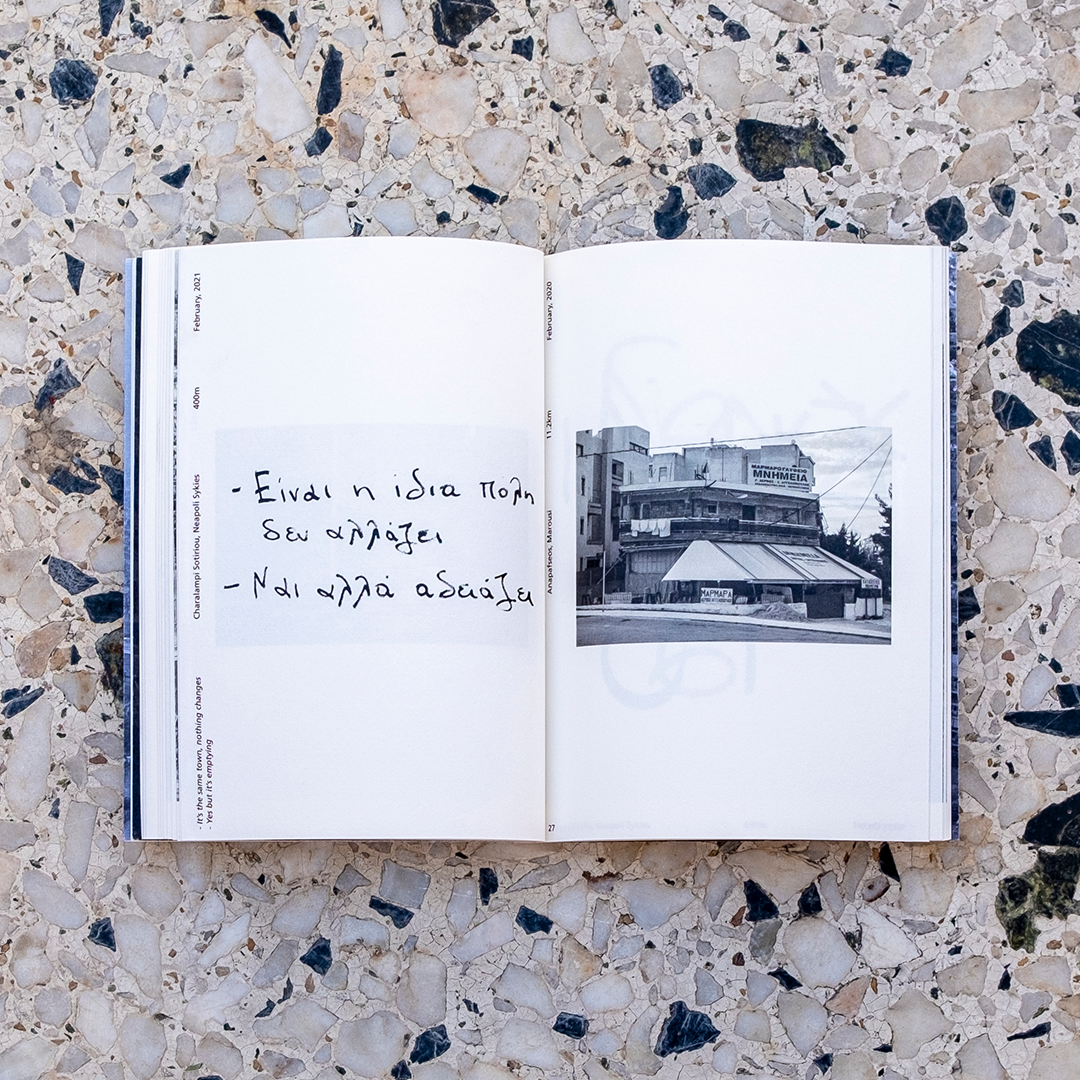 February, 2021
400m
Charalampi Sotiriou, Neapoli Sykies
- It's the same town, nothing changes
- Yes but it's emptying
- Είναι η ίδια πόλη
δεν αλλάζει
- Ναι αλλά αδειάζει
February, 2020
11.2km
Anapafseos, Marousi
27
ΜΑΡΜΑΡΟΓΛΥΦΕΙΟ
ΜΝΗΜΕΙΑ
ΜΑΡΜΑΡΑ